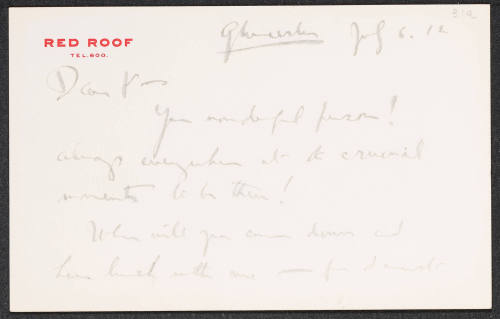 RED ROOF
TEL. 600.
Gloucester July 6. 12
312
Dear
You wonderful person!
always everywhere at the crucial
moments to be there!
When will you come down and
have lunch with me — for I must